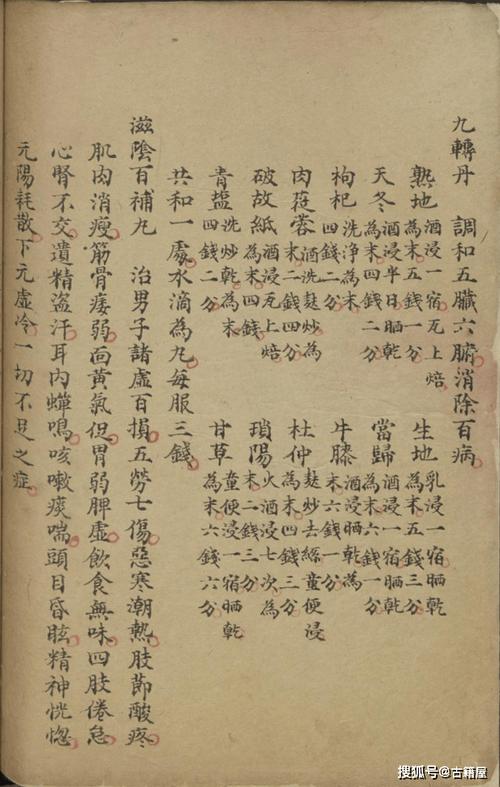 九轉丹　調和五臟六腑消除百病
熟地酒浸一宿瓦上焙為末五錢一分　生地乳浸一宿晒乾為末五錢三分
天冬酒浸半日晒乾為末四錢二分　當歸酒浸一宿晒乾為末六錢一分
枸杞洗淨為末四錢二分　牛膝酒浸晒乾為末六錢一分
肉蓯蓉酒洗麸炒為末二錢四分　杜仲麸炒去絲童便浸為末四錢三分
破故紙酒浸瓦上焙為末四錢　瑣陽火酒浸七次為末二錢三分
青盐洗炒乾為末四錢二分　甘草童便浸一宿晒乾為末六錢六分
共和一處水滴為丸每服三錢
滋陰百補丸　治男子諸虛百損五勞七傷惡寒潮熱肢節酸疼
肌肉消瘦筋骨痿弱面黃氣促胃弱脾虛飲食無味四肢倦怠
心腎不交遺精盗汗耳內蟬鳴咳嗽痰喘頭目昏眩精神恍惚
元陽耗散下元虛冷一切不足之症
搜狐号@古籍屋